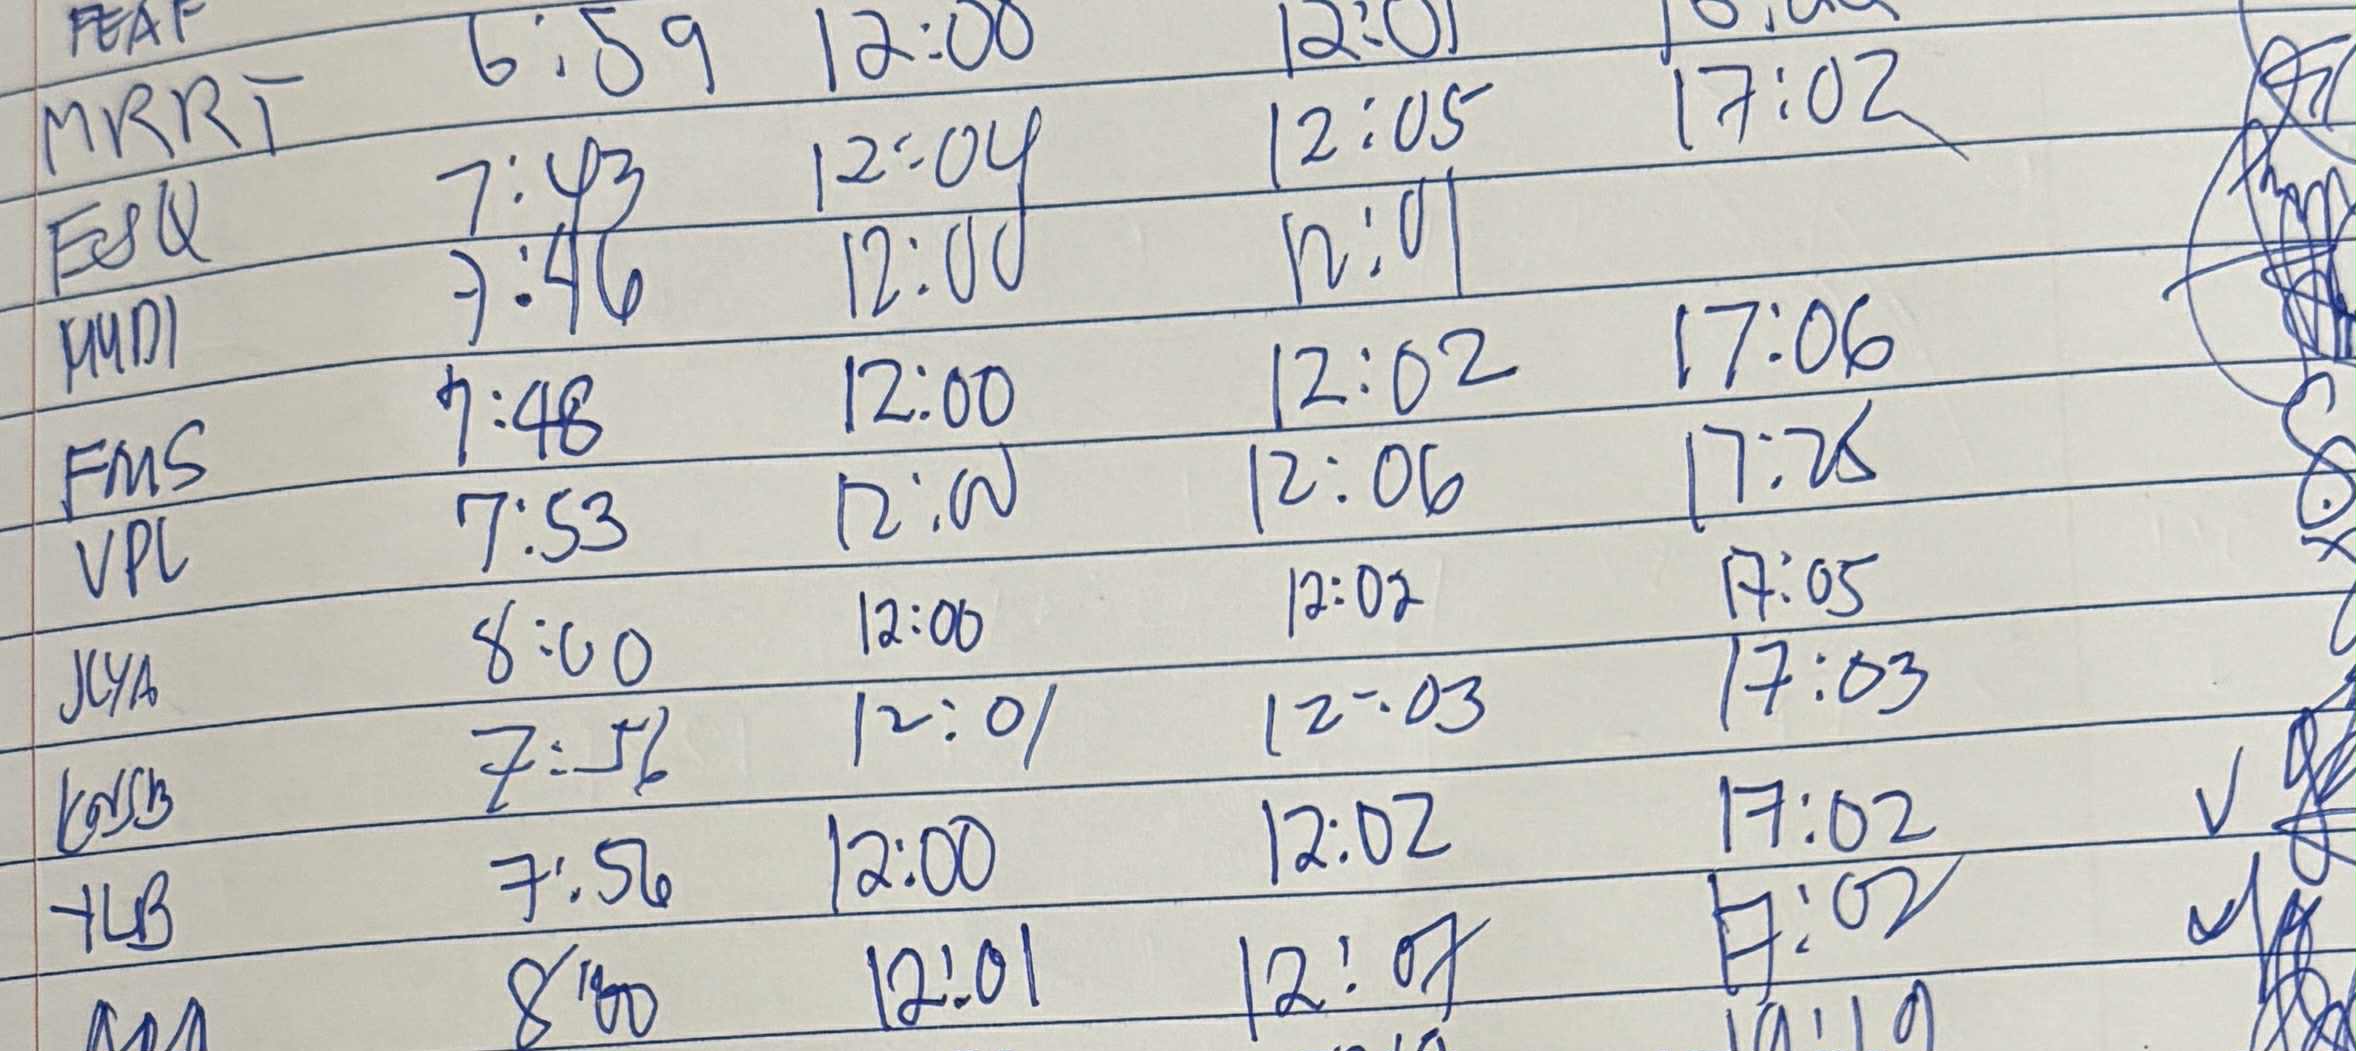 FEAF
MRRT 6:59 12:00 12:01
ESQ 7:43 12:04 12:05 17:02
7:46 12:00 12:01
FMS 7:48 12:00 12:02 17:06
VPL 7:53 12:00 12:06
JCYA 8:00 12:00 12:02 17:05
7:56 12:01 12:03 17:03
YLB 7:56 12:00 12:02 17:02
8:00 12:01 12:07 17:02